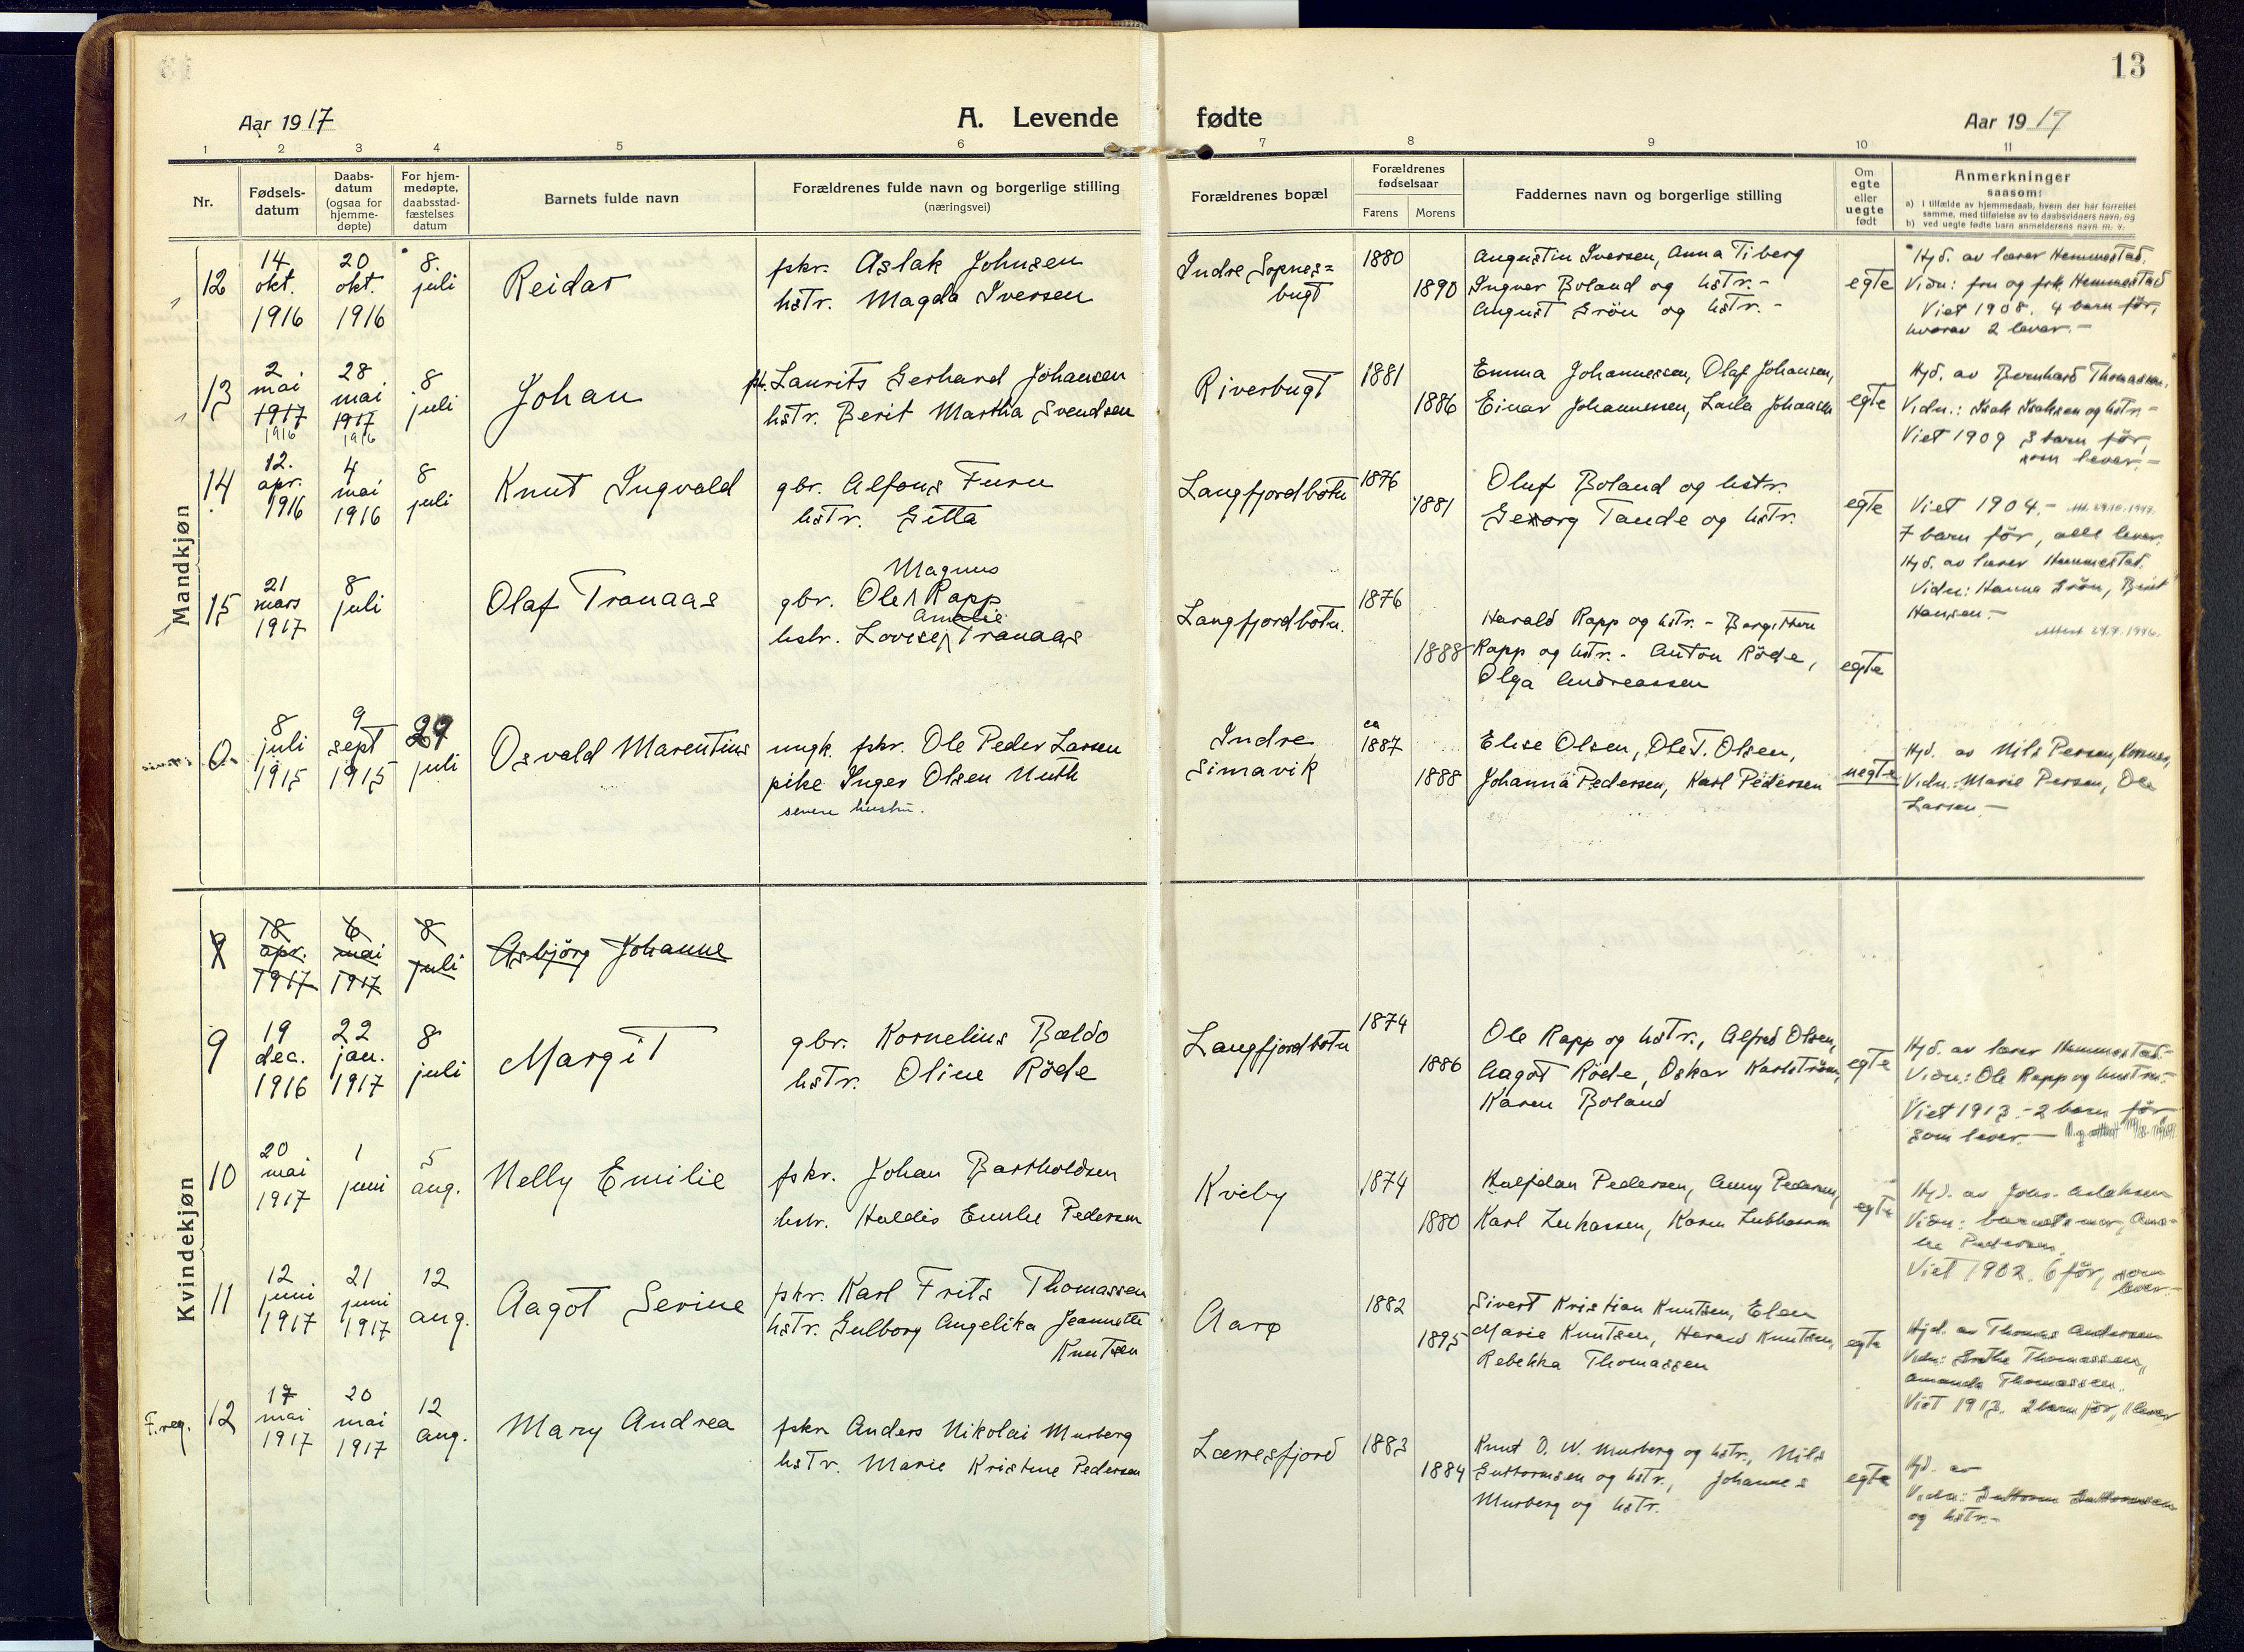 13
Aar 1917
A. Levende fødte
Aar 1917
1 2 3 4 5 6 7 8 9 10 11
Nr.
Fødsels-
datum
Daabs-
datum
(ogsaa for
hjemme-
døpte)
For hjem-
medøpte,
daabsstad-
fæstelses
datum
Barnets fulde navn
Forældrenes fulde navn og borgerlige stilling
(næringsvei)
Forældrenes bopæl
Forældrenes
fødselsaar
Farens Morens
Faddernes navn og borgerlige stilling
Om
egte
eller
uegte
født
Anmerkninger
saasom:
a) i tilfælde av hjemmedaab, hvem der har forrettet
samme, med tilføielse av to daabsvidners navn, og
b) ved uegte fødte barn anmelderens navn m. v.
Mandkjøn
12
14
okt.
1916
20
okt.
1916
8.
juli
Reidar
fskr. Aslak Johnsen
hstr. Magda Iversen
Indre Sopnes=
bugt
1880
1890
Augustin Iversen, Anna Tiberg
Ingver Boland og hstr. -
August Grön og hstr. -
egte
Hjd. av lærer Hemmestad.
Vidn: fru og frk. Hemmestad
Viet 1908. 4 barn før,
hvorav 2 lever. -
13
2
mai
1917
1916
28
mai
1917
1916
8
juli
Johan
Laurits Gerhard Johansen
hstr. Berit Martha Svendsen
Riverbugt
1881
1886
Emma Johannessen, Olaf Johansen,
Einar Johannessen, Laila Johansen
egte
Hjd. av Bernhard Thomassen.
Vidn.: Isak Isaksen og hstr. -
Viet 1909 3 barn før,
som lever. -
14
12.
apr.
1916
4
mai
1916
8
juli
Knut Ingvald
gbr. Alfons Furu
hstr. Gitta
Langfjordbotn
1876
1881
Oluf Boland og hstr.
Georg Tande og hstr.
egte
Viet 1904. -
7 barn før, alle lever.
Hjd. av lærer Hemmestad.
Vidn: Hanna Grön, Berit
Hansen. -
15
21
mars
1917
8
juli
Olaf Tranaas
Magnus
gbr. Ole Rapp
Amalie
hstr. Lovise Tranaas
Langfjordbotn.
1876
1888
Harald Rapp og hstr. - Bergitte
Rapp og hstr. - Anton Röde,
Olga Andreassen
egte
0.
8
juli
1915
9
sept
1915
29
juli
Osvald Marentius
ungk. fskr. Ole Peder Larsen
pike Inger Olsen Nuth
senere hustru.
Indre
Simavik
ca
1887
1888
Elise Olsen, Ole T. Olsen,
Johanna Pedersen, Karl Pedersen
uegte
Hjd. av Nils Persen, Korsnes,
Vidn.: Marie Persen, Ole
Larsen -
Kvindekjøn
9
18
apr.
1917
6
mai
1917
8
juli
Asbjörg Johanne
9
19
dec.
1916
22
jan.
1917
8
juli
Margit
gbr. Kornelius Bældo
hstr. Oline Röde
Langfjordbotn
1874
1886
Ole Rapp og hstr., Alfred Olsen,
Aagot Röde, Oskar Karlström,
Karen Boland
egte
Hjd. av lærer Hemmestad. -
Vidn.: Ole Rapp og hustru. -
Viet 1913. - 2 barn før,
som lever. -
10
20
mai
1917
1
juni
5
aug.
Nelly Emilie
fskr. Johan Bartholdsen
hstr. Haldis Emilie Pedersen
Kviby
1874
1880
Halfdan Pedersen, Anny Pedersen,
Karl Lukassen, Karen Lukkassen
egte
Hjd. av Johs. Aslaksen
Vidn: barnets mor, Ama-
lie Pedersen.
Viet 1902. 6 før, som
lever. -
11
12
juni
1917
21
juni
1917
12
aug.
Aagot Serine
fskr. Karl Frits Thomassen
hstr. Gulborg Angelika Jeannette
Knutsen
Aarø
1882
1895
Sivert Kristian Knutsen, Elen
Marie Knutsen, Harald Knutsen,
Rebekka Thomassen
egte
Hjd. av Thomas Andersen
Vidn: Grethe Thomassen,
Amanda Thomassen.
Viet 1913. 2 barn før, 1 lever
F.reg.
12
17
mai
1917
20
mai
1917
12
aug.
Mary Andrea
fskr. Anders Nikolai Murberg
hstr. Marie Kristine Pedersen
Lerresfjord
1883
1884
Knut O. N. Murberg og hstr., Nils
Guttormsen og hstr., Johannes
Murberg og hstr.
egte
Hjd. av
Vidn: Guttorm Guttormsen
og hstr. -